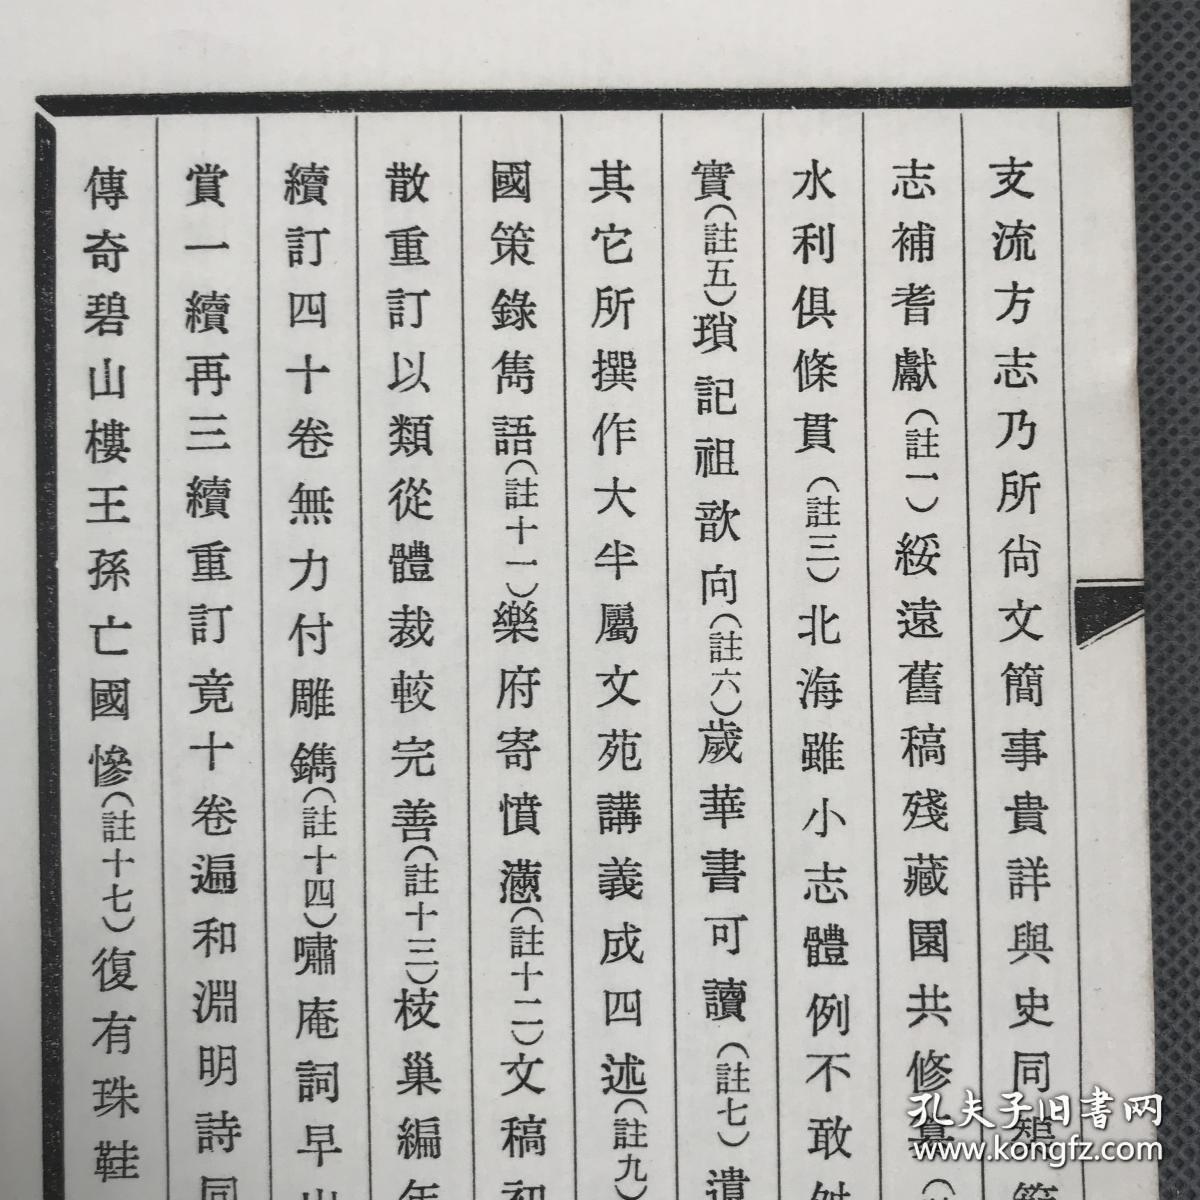 支流方志乃所尙文簡事貴詳與史同
志補耆獻(註一)綏遠舊稿殘藏園共修纂
水利俱條貫(註三)北海雖小志體例不敢
實(註五)瑣記祖歆向(註六)歲華書可讀(註七)遺
其它所撰作大半屬文苑講義成四述(註九)
國策錄雋語(註十一)樂府寄憤懣(註十二)文稿初
散重訂以類從體裁較完善(註十三)枝巢編年
續訂四十卷無力付雕鐫(註十四)嘯庵詞早
賞一續再三續重訂竟十卷遍和淵明詩同
傳奇碧山樓王孫亡國慘(註十七)復有珠鞋
孔夫子旧書网
www.kongfz.com